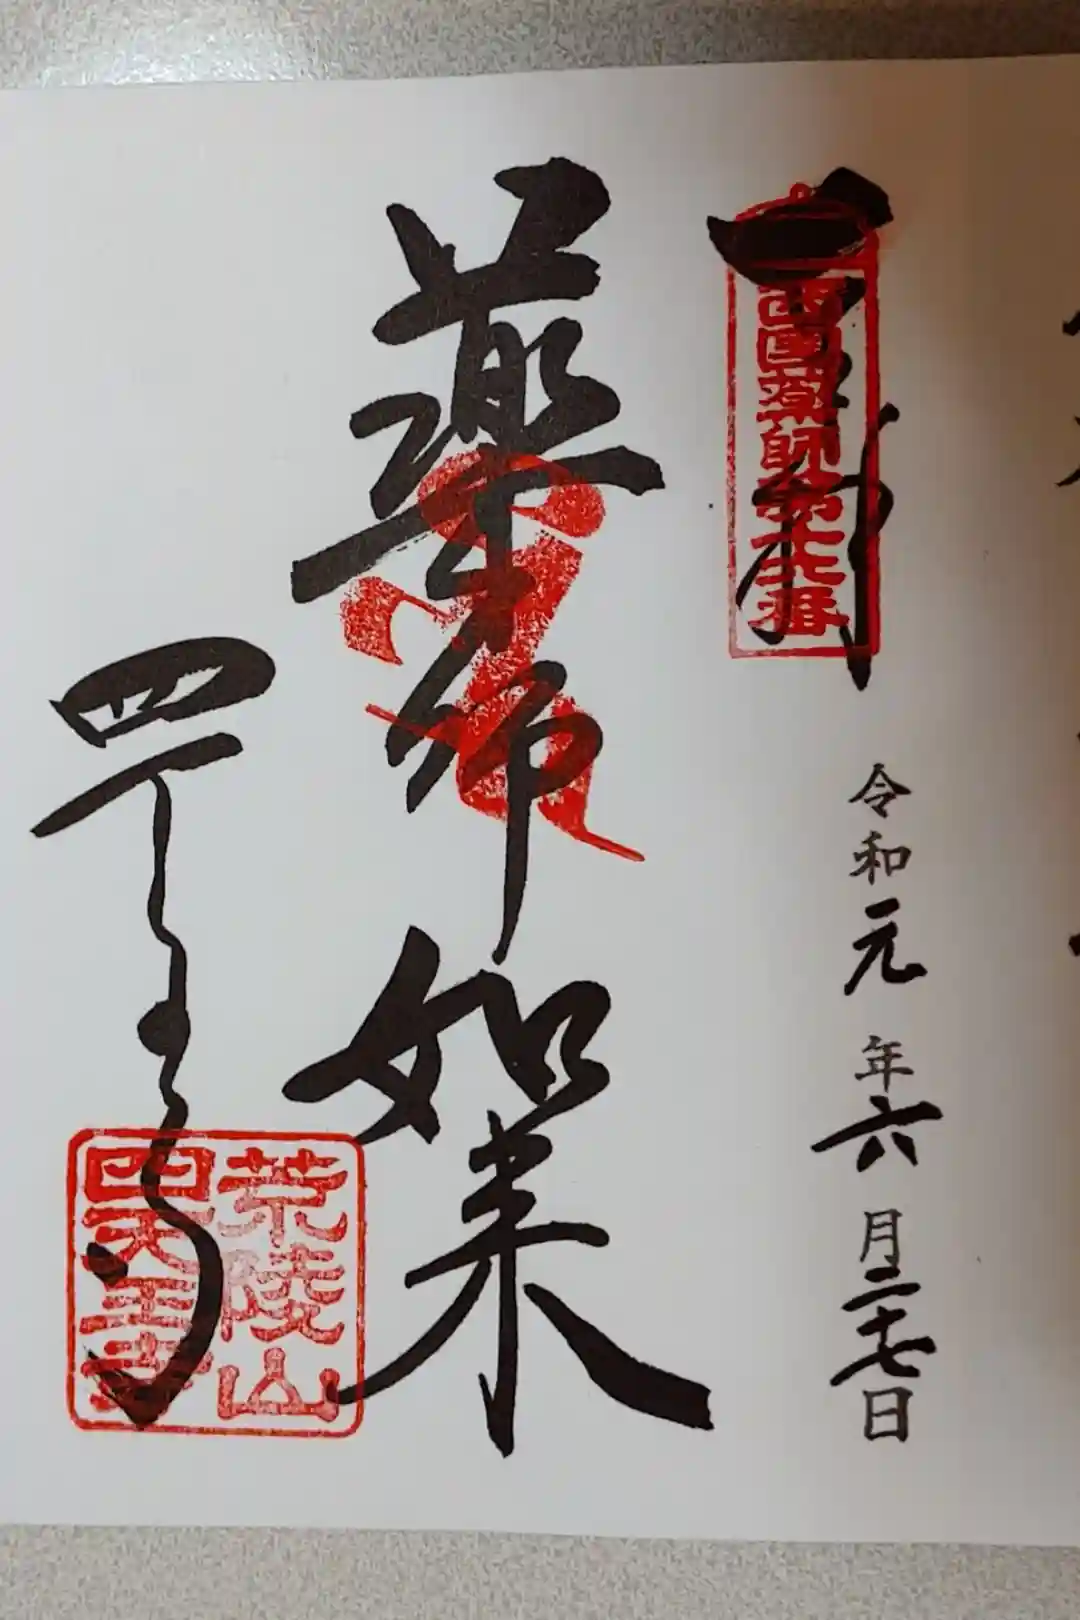 奉拝
西国薬師第十六番
令和元年六月二十七日
薬師如来
四天王寺
荒陵山
四天王寺